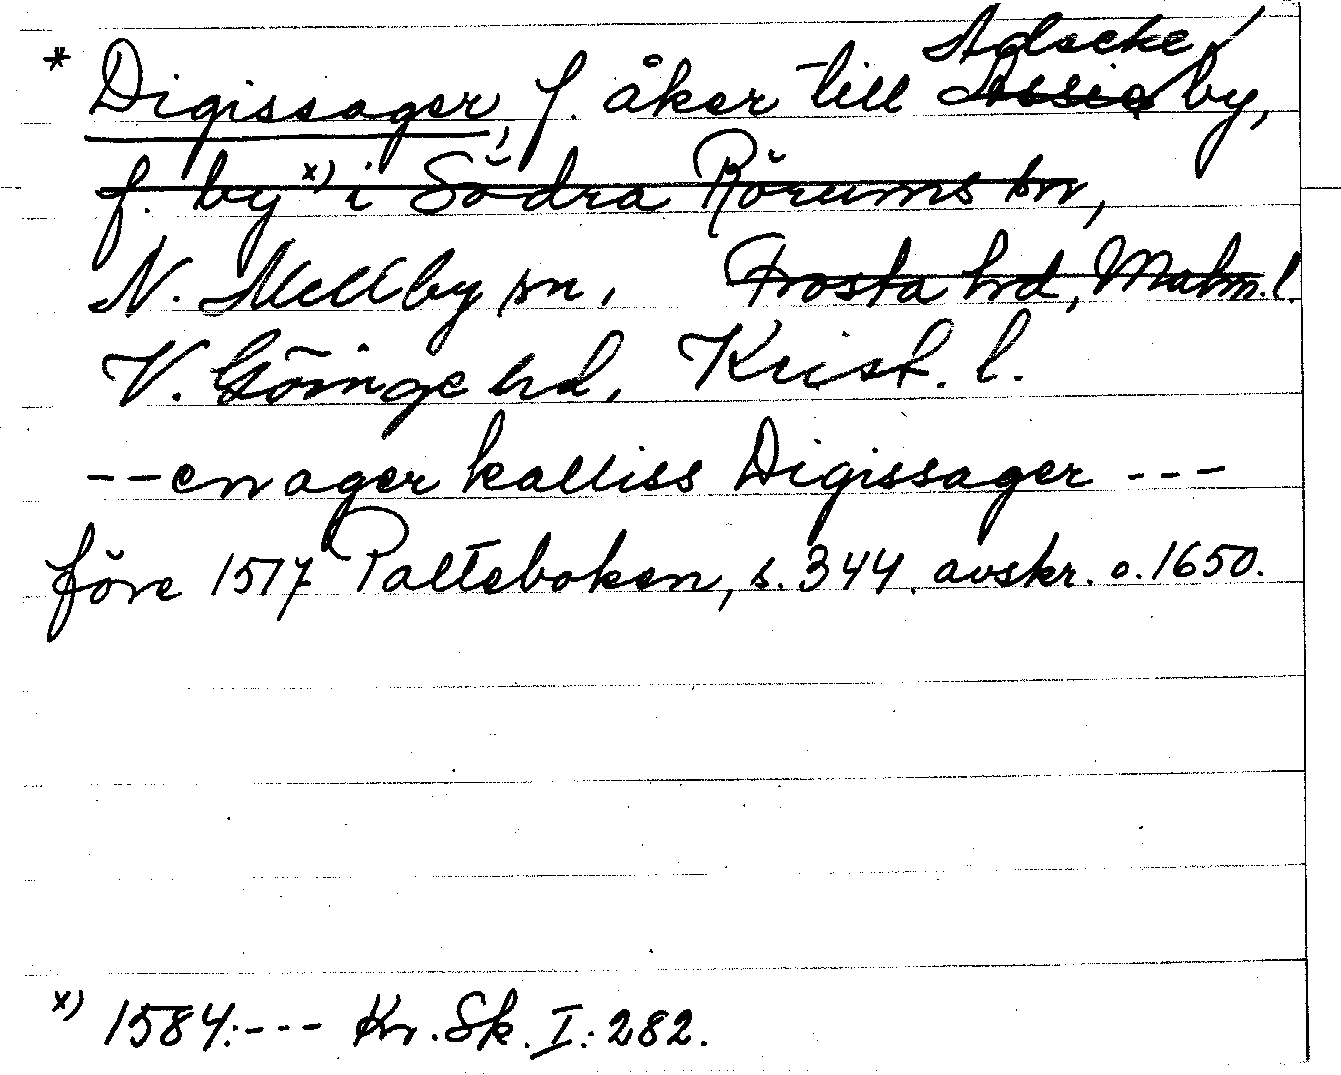 Adseke
* Digissager, f. åker till Assie by,
f. by x) i Södra Rörums sn,
N. Mellby sn, Frosta hd, Malm. l.
V. Göinge hd, Krist. l.
--en ager kalliss Digissager ---
före 1517 Palteboken, s. 344. avskr. c. 1650.
x) 1584:--- Kr. Sk. I: 282.